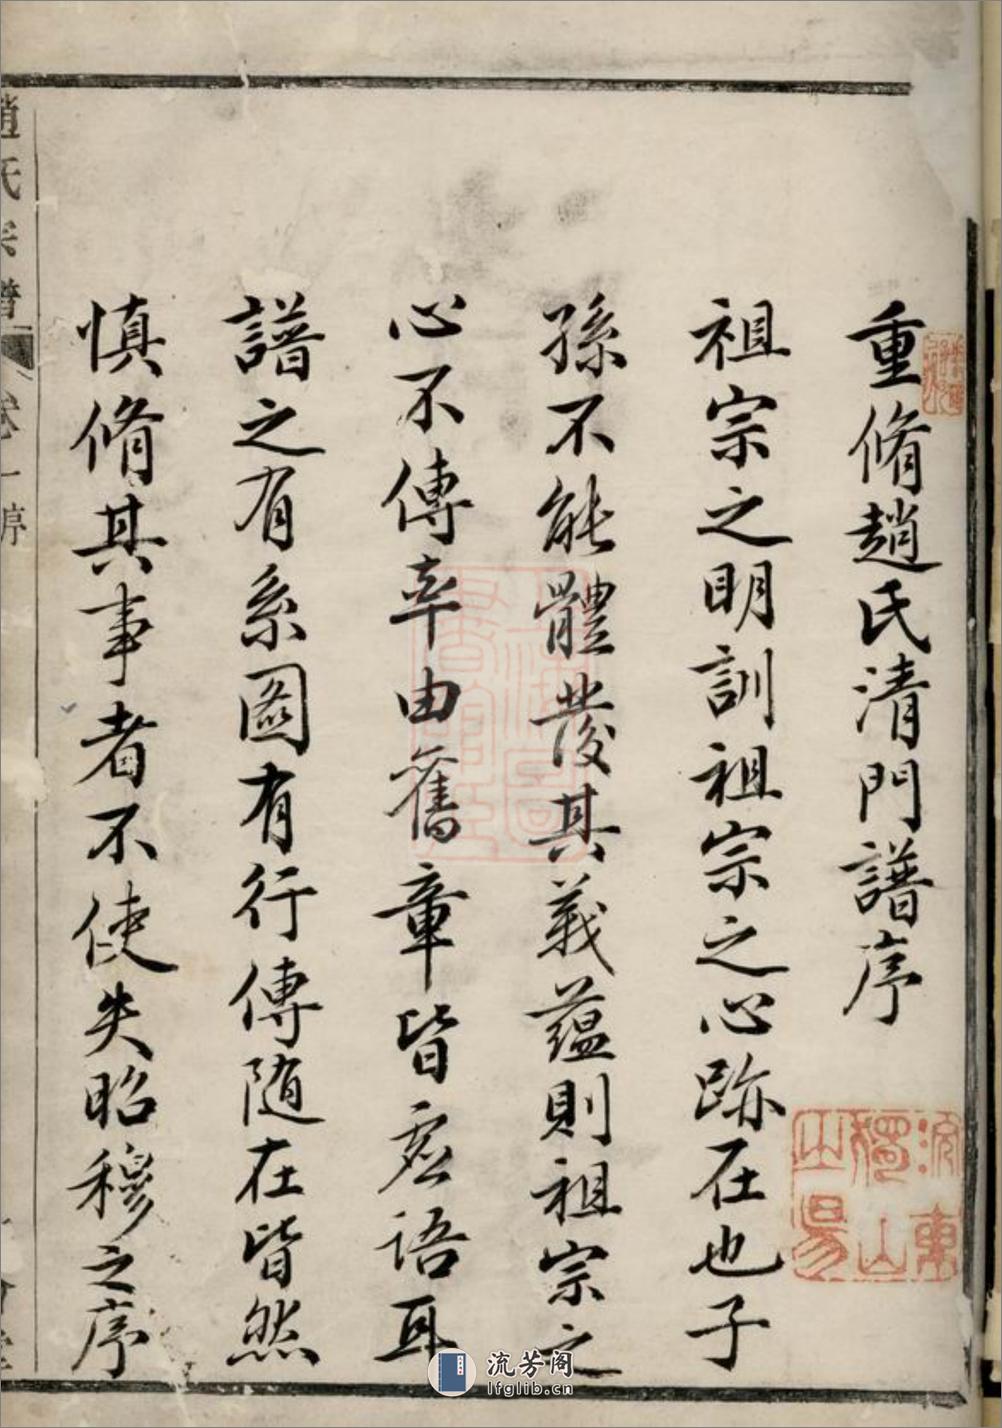 重脩趙氏清門譜序
祖宗之明訓祖宗之心跡在也子
孫不能體發其義蘊則祖宗之
心不傳率由舊章皆虛語耳
譜之有系圖有行傳隨在皆然
慎脩其事者不使失昭穆之序
趙氏宗譜 卷一序
流芳阁
lfglib.cn